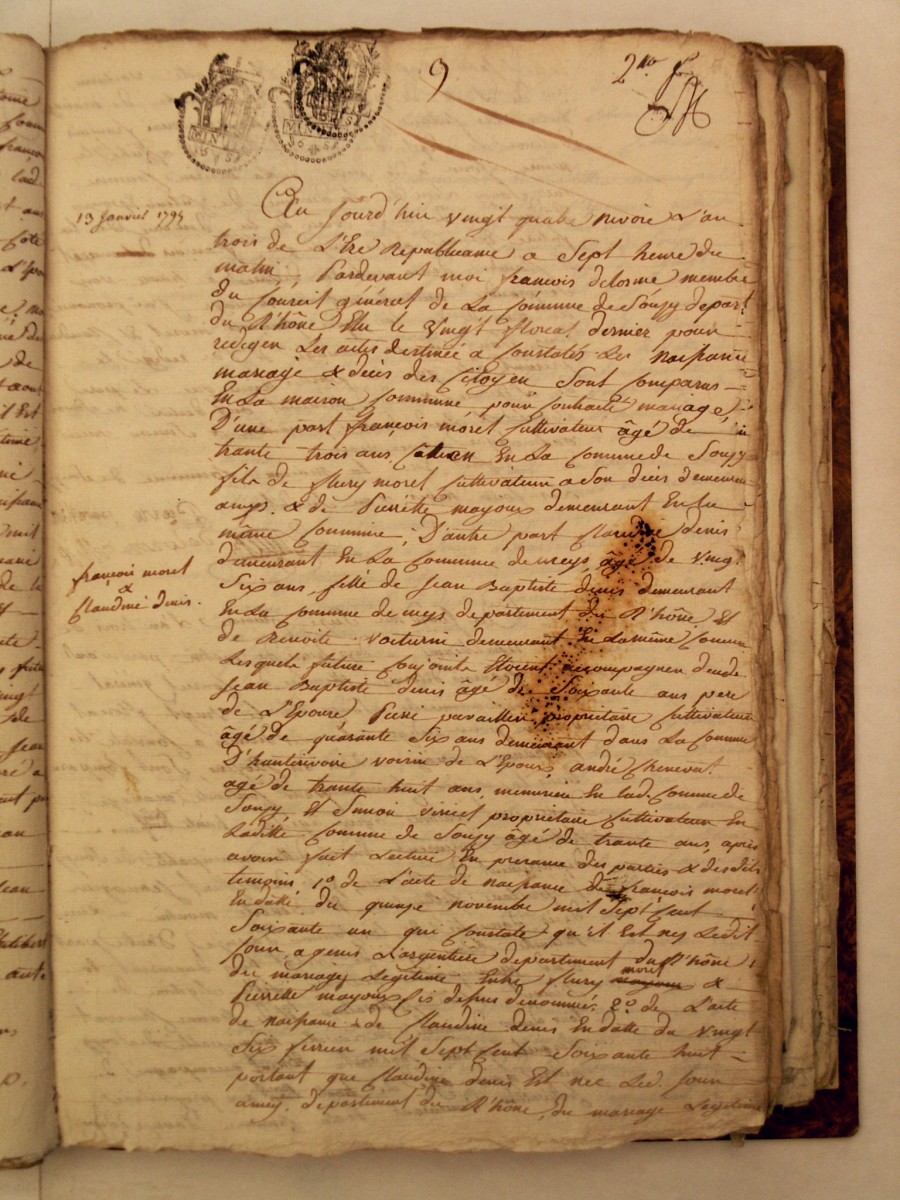 9
2
13 Janvier 1795
Au jourd'hui vingt quatre nivose L'an
trois de L'Ere Republicaine a Sept heure du
matin, Pardevant moi françois delorme membre
du Conseil général de La Commune de Souzy depart.
du Rhône Elu le vingt floreal dernier pour
redigen Les actes destinée a Constatés Les Naissance
mariage & décés des Citoyen Sont Comparus
En La maison Commune pour Souhaité mariage
D'une part françois moret Cultivateur âgé de
trante trois ans En La Commune de Souzy
fils de fleury moret Cultivateur a Son décés demeurant
& de Pierrette mayoux demeurant En La
même Commune, D'autre part Claudine denis
demeurant En La Commune de meys âgé de vingt
Six ans fille de Jean Baptiste denis demeurant
En La Commune de meys departement du R'hône Et
de Benoite voiturin demeurant En La même Commune
Lesquels future Conjoints Etoient accompagnen
Jean Baptiste denis âgé de Soixante ans pere
de L'Epouse propriétaire Cultivateur
âgé de quarante Six ans demeurant dans La Commune
D'hauterivoire voisin de L'Epoux andré Chenevat
agé de trante huit ans, En lad. Commune de
Souzy Et Simon propriétaire Cultivateur En
Laditte Commune de Souzy âgé de trante ans, après
avoir fait Lecture En presance des parties & desdits
temoins 1o. de L'acte de naissance de françois moret
En datte du quinze novembre mil Sept Cent
Soixante un qui Constate qu'il Est nes Ledit
Jour Largentiere departement du R'hône
du mariage Legitime Entre fleury moret &
Pierrette mayoux denommés 2o. de L'acte
de naissance de Claudine denis En datte du vingt
Six fevrier mil Sept Cent Soixante huit
portant que Claudine denis Est nee Led. Jour
a meys departement du R'hône, du mariage Legitime
françois moret
&
Claudine denis.